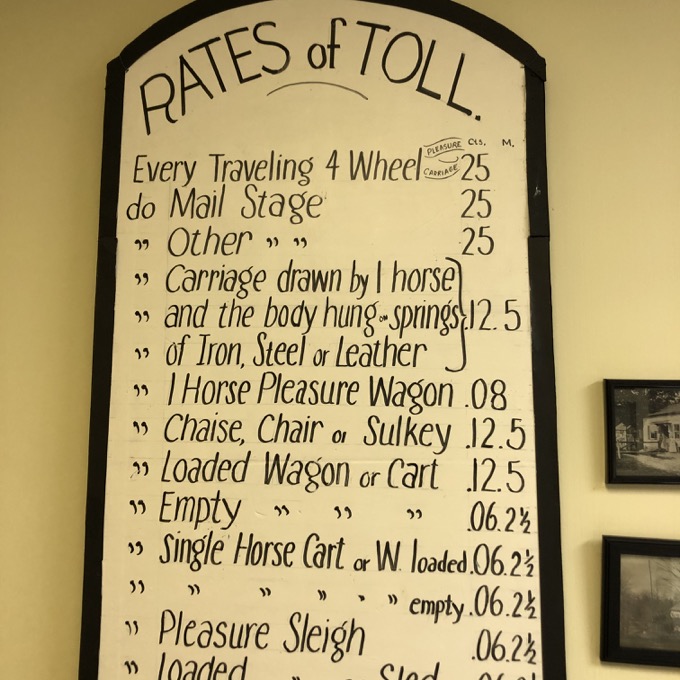 RATES of TOLL.
PLEASURE Cts. M.
Every Traveling 4 Wheel CARRIAGE 25
do Mail Stage 25
" Other " " 25
" Carriage drawn by 1 horse
" and the body hung on springs 12.5
" of Iron, Steel or Leather
" 1 Horse Pleasure Wagon .08
" Chaise, Chair or Sulkey .12.5
" Loaded Wagon or Cart .12.5
" Empty " " " .06.2½
" Single Horse Cart or W. loaded .06.2½
" " " " " " empty .06.2½
" Pleasure Sleigh .06.2½
" Loaded " Sled